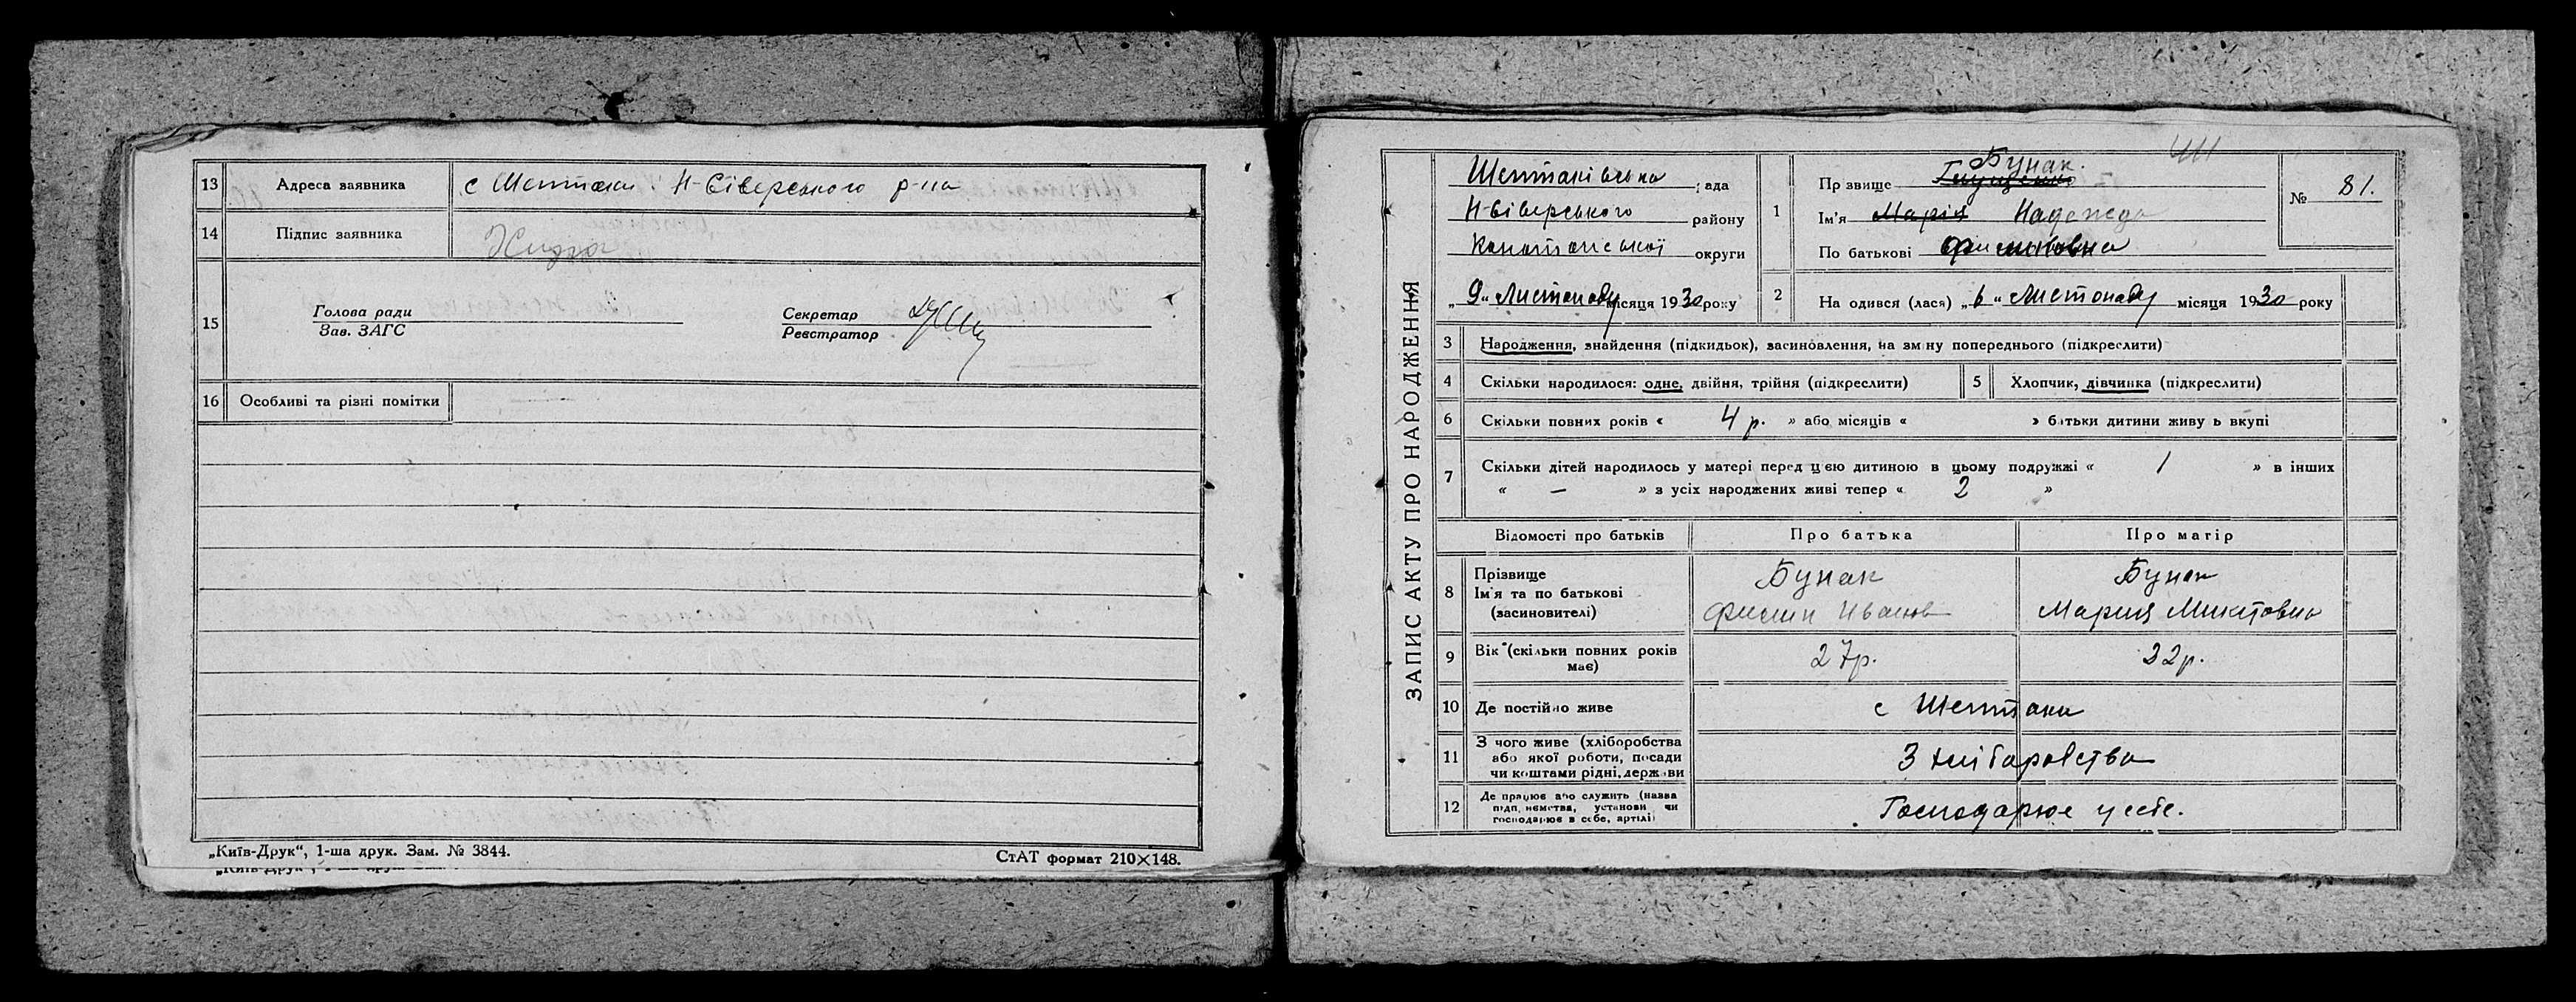 13 Адреса заявника с Шептаки Н-Сіверського р-на
14 Підпис заявника
15 Голова ради
Зав. ЗАГС
Секретар
Реєстратор
16 Особливі та різні помітки
„Київ-Друк“, 1-ша друк. Зам. № 3844.
СтАТ формат 210×148.
ЗАПИС АКТУ ПРО НАРОДЖЕННЯ
Шептаківська рада
Н-Сіверського району
Конотопської округи
„9“ Листопаду місяця 1930 року
1
Бунак
Прізвище
Ім'я Марія Надежда
По батькові Филиповна
№ 81.
2 Народився (лася) „6“ Листопаду місяця 1930 року
3 Народження, знайдення (підкидьок), засиновлення, на зміну попереднього (підкреслити)
4 Скільки народилося: одне, двійня, трійня (підкреслити)
5 Хлопчик, дівчинка (підкреслити)
6 Скільки повних років « 4 р. » або місяців « » батьки дитини живуть вкупі
7 Скільки дітей народилось у матері перед цією дитиною в цьому подружжі « 1 » в інших
« — » з усіх народжених живі тепер « 2 »
Відомості про батьків Про батька Про матір
8 Прізвище
Ім'я та по батькові
(засиновителі)
Бунак
Филип Иванов
Бунак
Мария Микитовна
9 Вік (скільки повних років
має)
27р.
32р.
10 Де постійно живе с Шептаки
11 З чого живе (хліборобства
або якої роботи, посади
чи коштами рідні, держави
З хліборобства
12 Де працює або служить (назва
підприємства, установи чи
господарює в себе, артілі)
Господарює у себе.